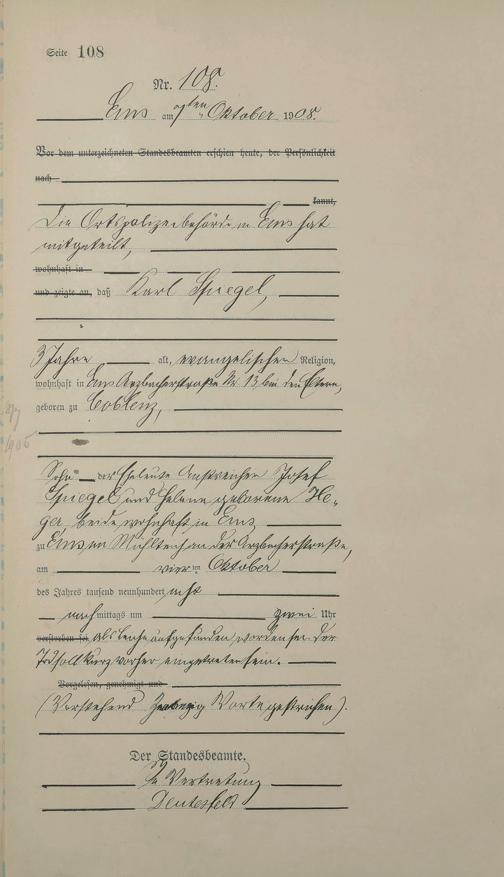 Seite 108
Nr. 108.
Ems am 7ten Oktober 1908.
Vor dem unterzeichneten Standesbeamten erschien heute, der Persönlichkeit
nach
kannt,
Die Ortspolizeibehörde in Ems hat
mitgeteilt,
wohnhaft in
und zeigte an, daß Karl Spiegel,
3 Jahre alt, evangelischen Religion,
wohnhaft in Ems Arzbacherstraße Nr. 13 bei den Eltern,
geboren zu Coblenz,
Sohn der Eheleute Anstreicher Josef
Spiegel und Helene geborene He-
ger, beide wohnhaft in Ems
zu Ems im Mühlteich an der Arzbacherstraße,
am vierten Oktober
des Jahres tausend neunhundert acht
nachmittags um zwei Uhr
verstorben sei als Leiche aufgefunden worden sei. Der
Tod soll kurz vorher eingetreten sein.
Vorgelesen, genehmigt und
(Vorstehend Worte gestrichen).
Der Standesbeamte.
In Vertretung